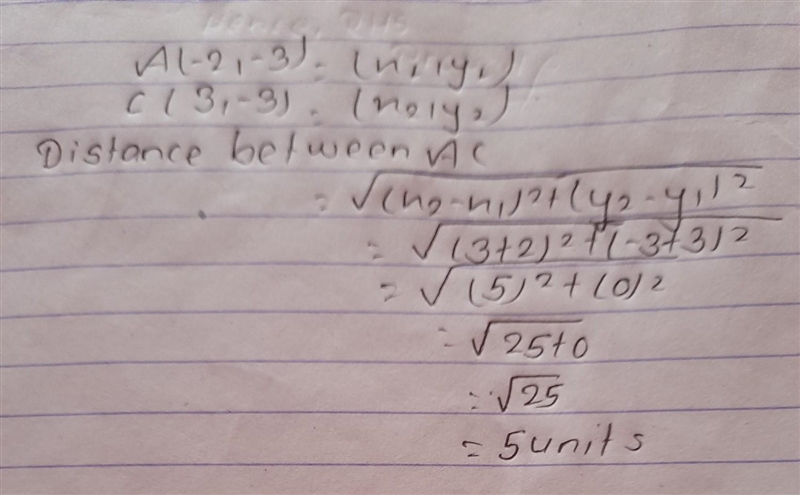 A(-2,-3) = (x₁,y₁)
C(3,-3) = (x₂,y₂)
Distance between AC
= √(x₂-x₁)²+(y₂-y₁)²
= √(3+2)²+(-3+3)²
= √(5)²+(0)²
= √25+0
= √25
= 5 units